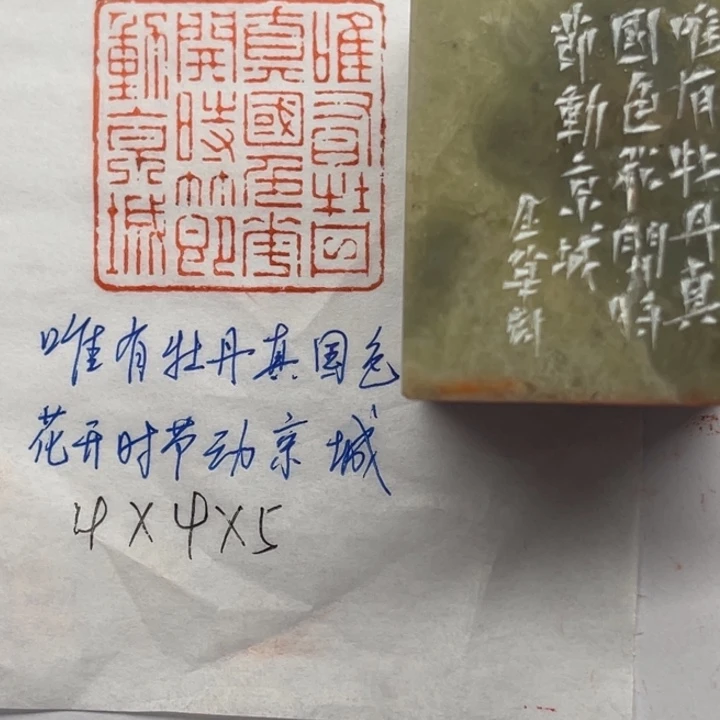 唯有牡丹
真國色華
開時節
動京城
唯有牡丹真
國色花開時
節動京城
唯有牡丹真国色
花开时节动京城
4×4×5